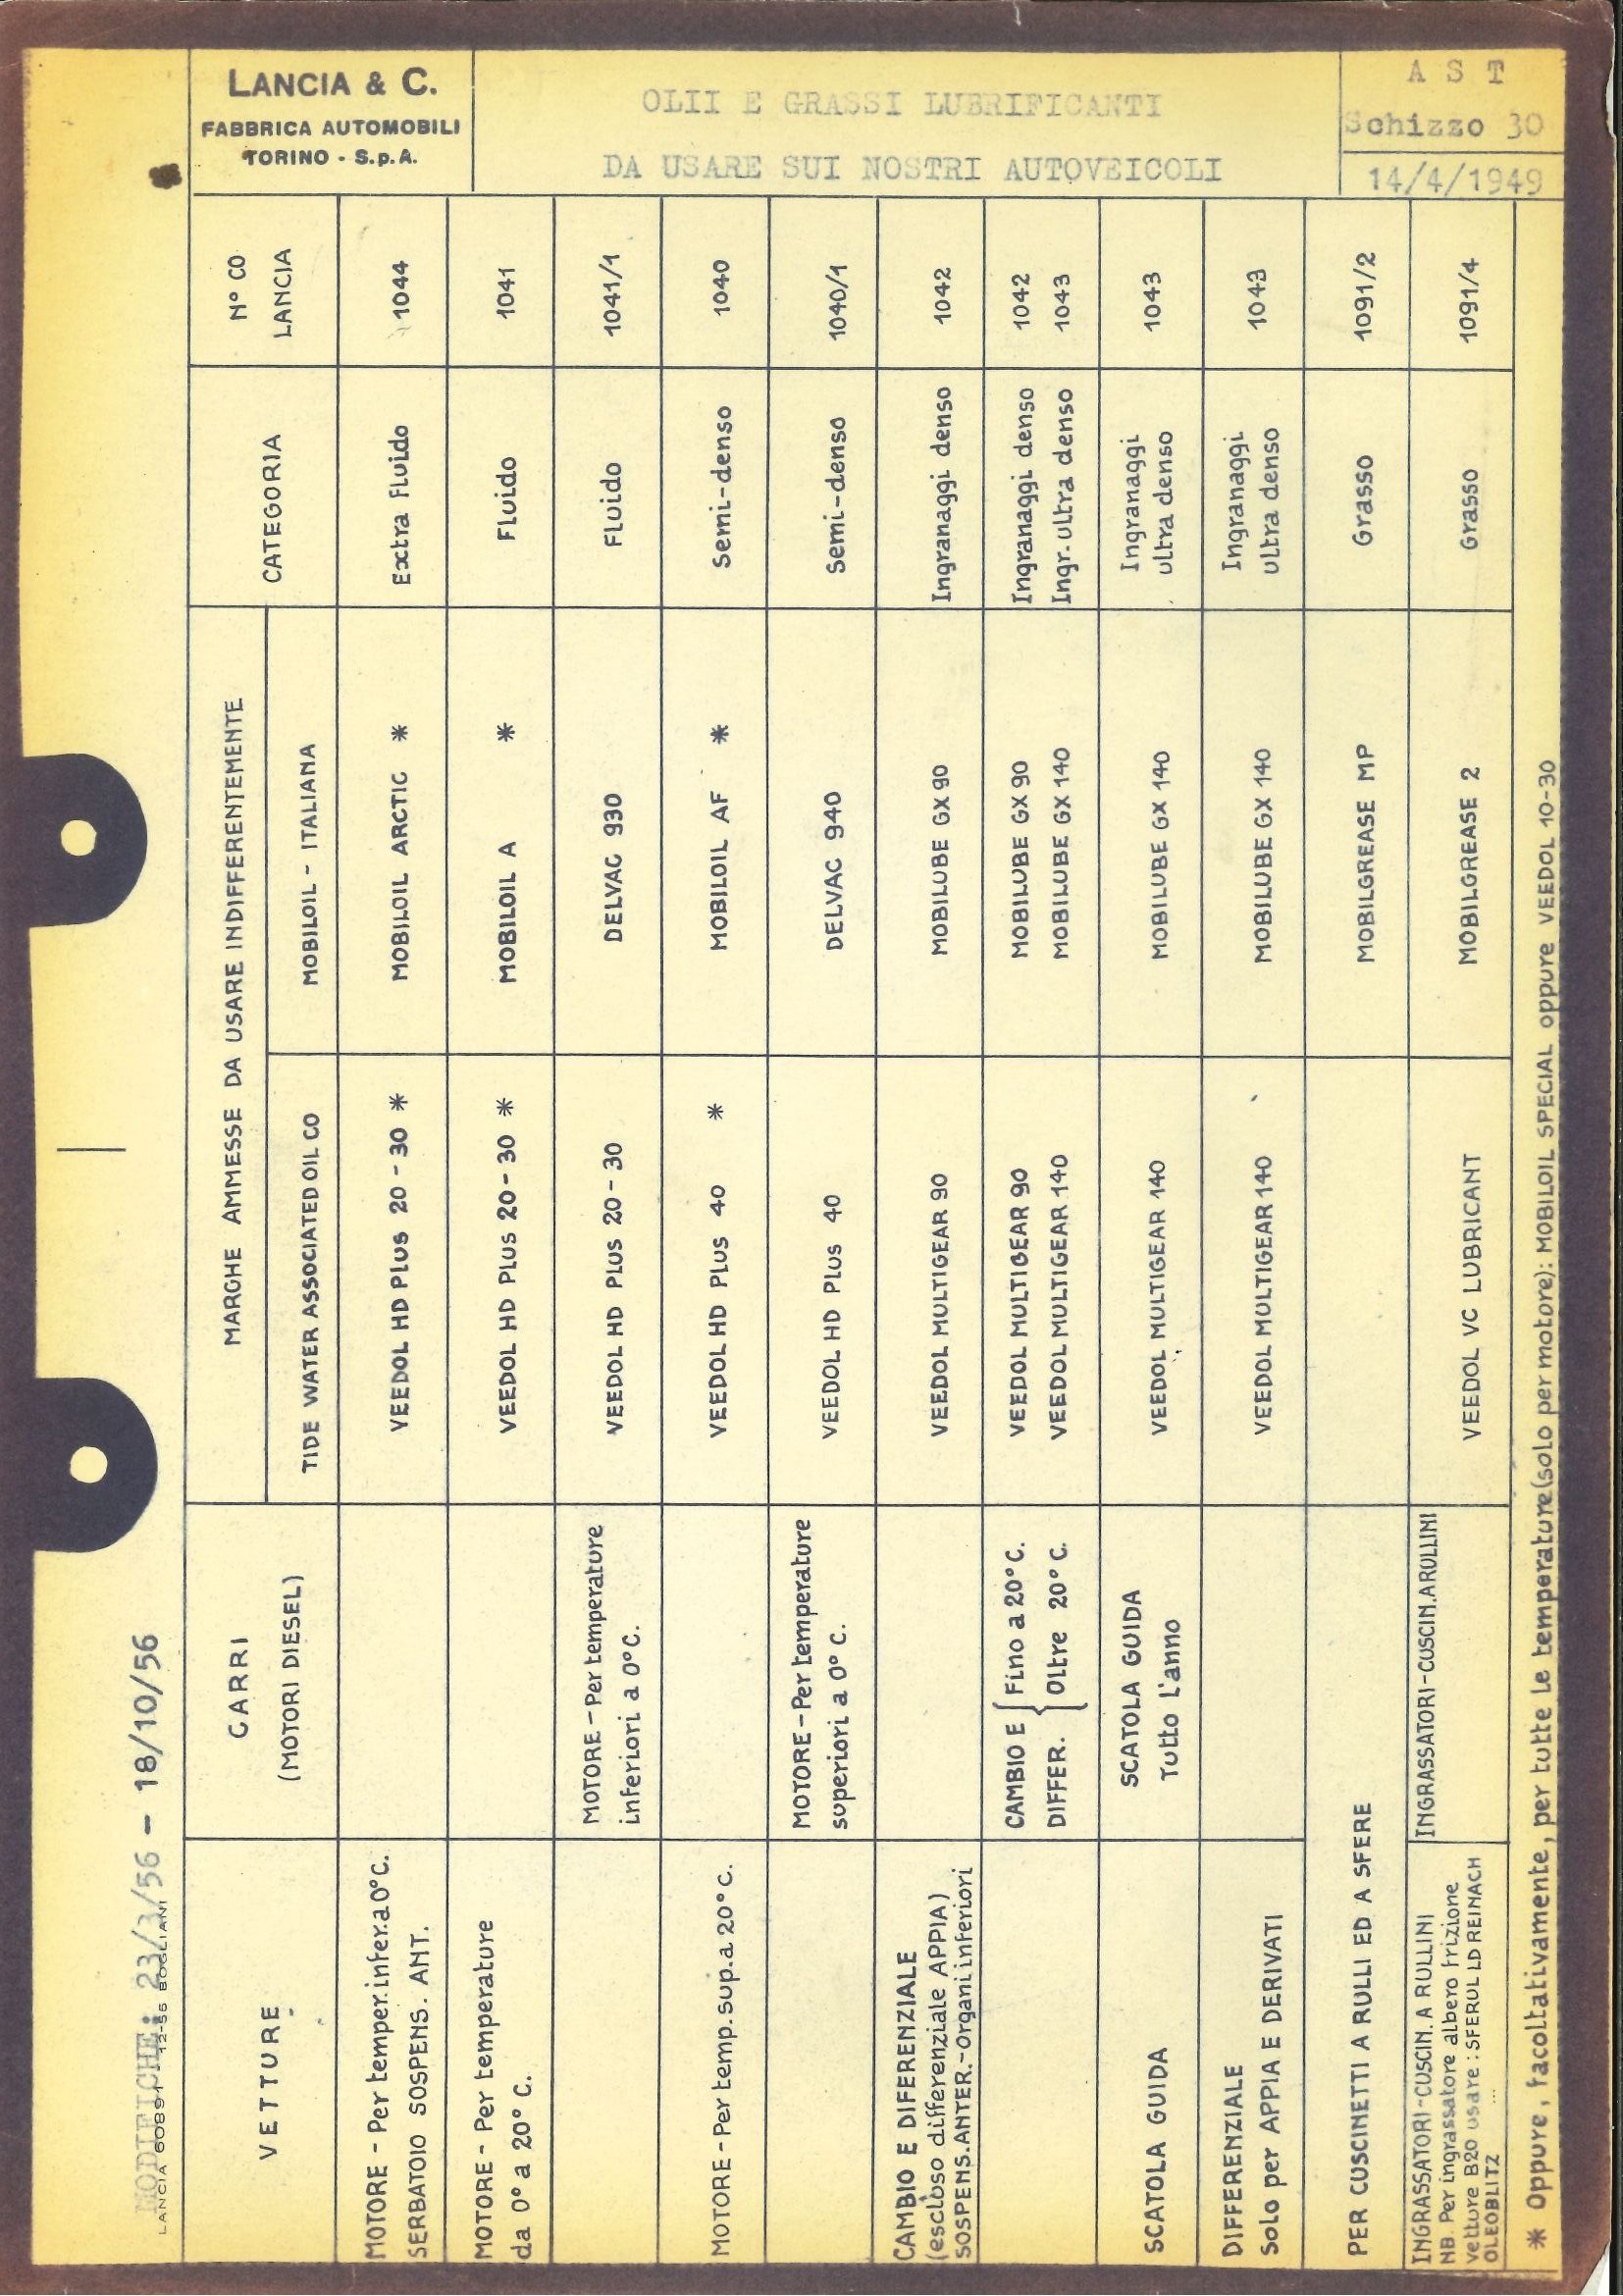 LANCIA & C.
FABBRICA AUTOMOBILI
TORINO - S.p.A.
OLII E GRASSI LUBRIFICANTI
DA USARE SUI NOSTRI AUTOVEICOLI
A S T
Schizzo 30
14/4/1949
MODIFICHE: 23/3/56 - 18/10/56
VETTURE
CARRI
(MOTORI DIESEL)
MARCHE AMMESSE DA USARE INDIFFERENTEMENTE
TIDE WATER ASSOCIATED OIL CO
MOBILOIL - ITALIANA
CATEGORIA
N° CO
LANCIA
MOTORE - Per temper. infer. a 0° C.
SERBATOIO SOSPENS. ANT.
VEEDOL HD Plus 20 - 30 *
MOBILOIL ARCTIC *
Extra Fluido
1044
MOTORE - Per temperature
da 0° a 20° C.
VEEDOL HD Plus 20 - 30 *
MOBILOIL A *
Fluido
1041
MOTORE - Per temperature
inferiori a 0° C.
VEEDOL HD Plus 20 - 30
DELVAC 930
Fluido
1041/1
MOTORE - Per temp. sup. a 20° C.
VEEDOL HD Plus 40 *
MOBILOIL AF *
Semi-denso
1040
MOTORE - Per temperature
superiori a 0° C.
VEEDOL HD Plus 40
DELVAC 940
Semi-denso
1040/1
CAMBIO E DIFERENZIALE
(escluso differenziale APPIA)
SOSPENS. ANTER. - Organi inferiori
VEEDOL MULTIGEAR 90
MOBILUBE GX 90
Ingranaggi denso
1042
CAMBIO E { Fino a 20° C.
DIFFER. { Oltre 20° C.
VEEDOL MULTIGEAR 90
VEEDOL MULTIGEAR 140
MOBILUBE GX 90
MOBILUBE GX 140
Ingranaggi denso
Ingr. ultra denso
1042
1043
SCATOLA GUIDA
SCATOLA GUIDA
Tutto L'anno
VEEDOL MULTIGEAR 140
MOBILUBE GX 140
Ingranaggi
ultra denso
1043
DIFFERENZIALE
Solo per APPIA E DERIVATI
VEEDOL MULTIGEAR 140
MOBILUBE GX 140
Ingranaggi
ultra denso
1043
PER CUSCINETTI A RULLI ED A SFERE
MOBILGREASE MP
Grasso
1091/2
INGRASSATORI-CUSCIN. A RULLINI
NB. Per ingrassatore albero frizione
vetture B20 usare: SFERUL LD REINACH
OLEOBLITZ
INGRASSATORI-CUSCIN. A RULLINI
VEEDOL VC LUBRICANT
MOBILGREASE 2
Grasso
1091/4
* Oppure, facoltativamente, per tutte le temperature (solo per motore): MOBILOIL SPECIAL oppure VEEDOL 10-30